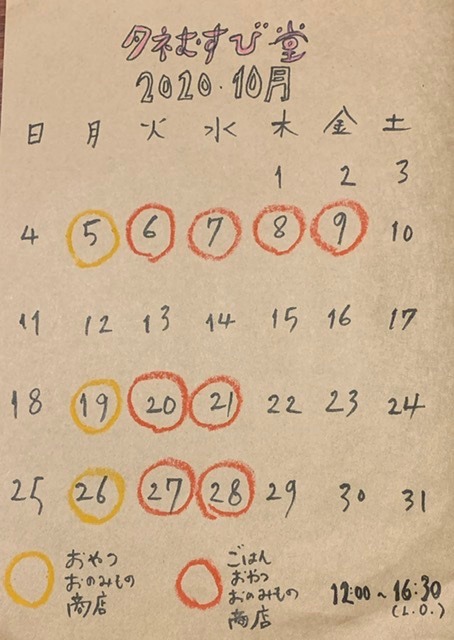 タネむすび堂
2020.10月
日 月 火 水 木 金 土
1 2 3
4 5 6 7 8 9 10
11 12 13 14 15 16 17
18 19 20 21 22 23 24
25 26 27 28 29 30 31
おやつ
おのみもの
商店
ごはん
おやつ
おのみもの
商店
12:00~16:30
(L.O.)